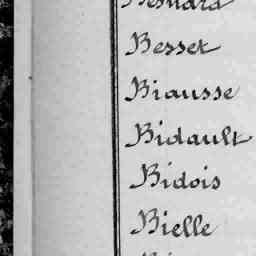 Besnard
Besset
Biausse
Bidault
Bidois
Bielle